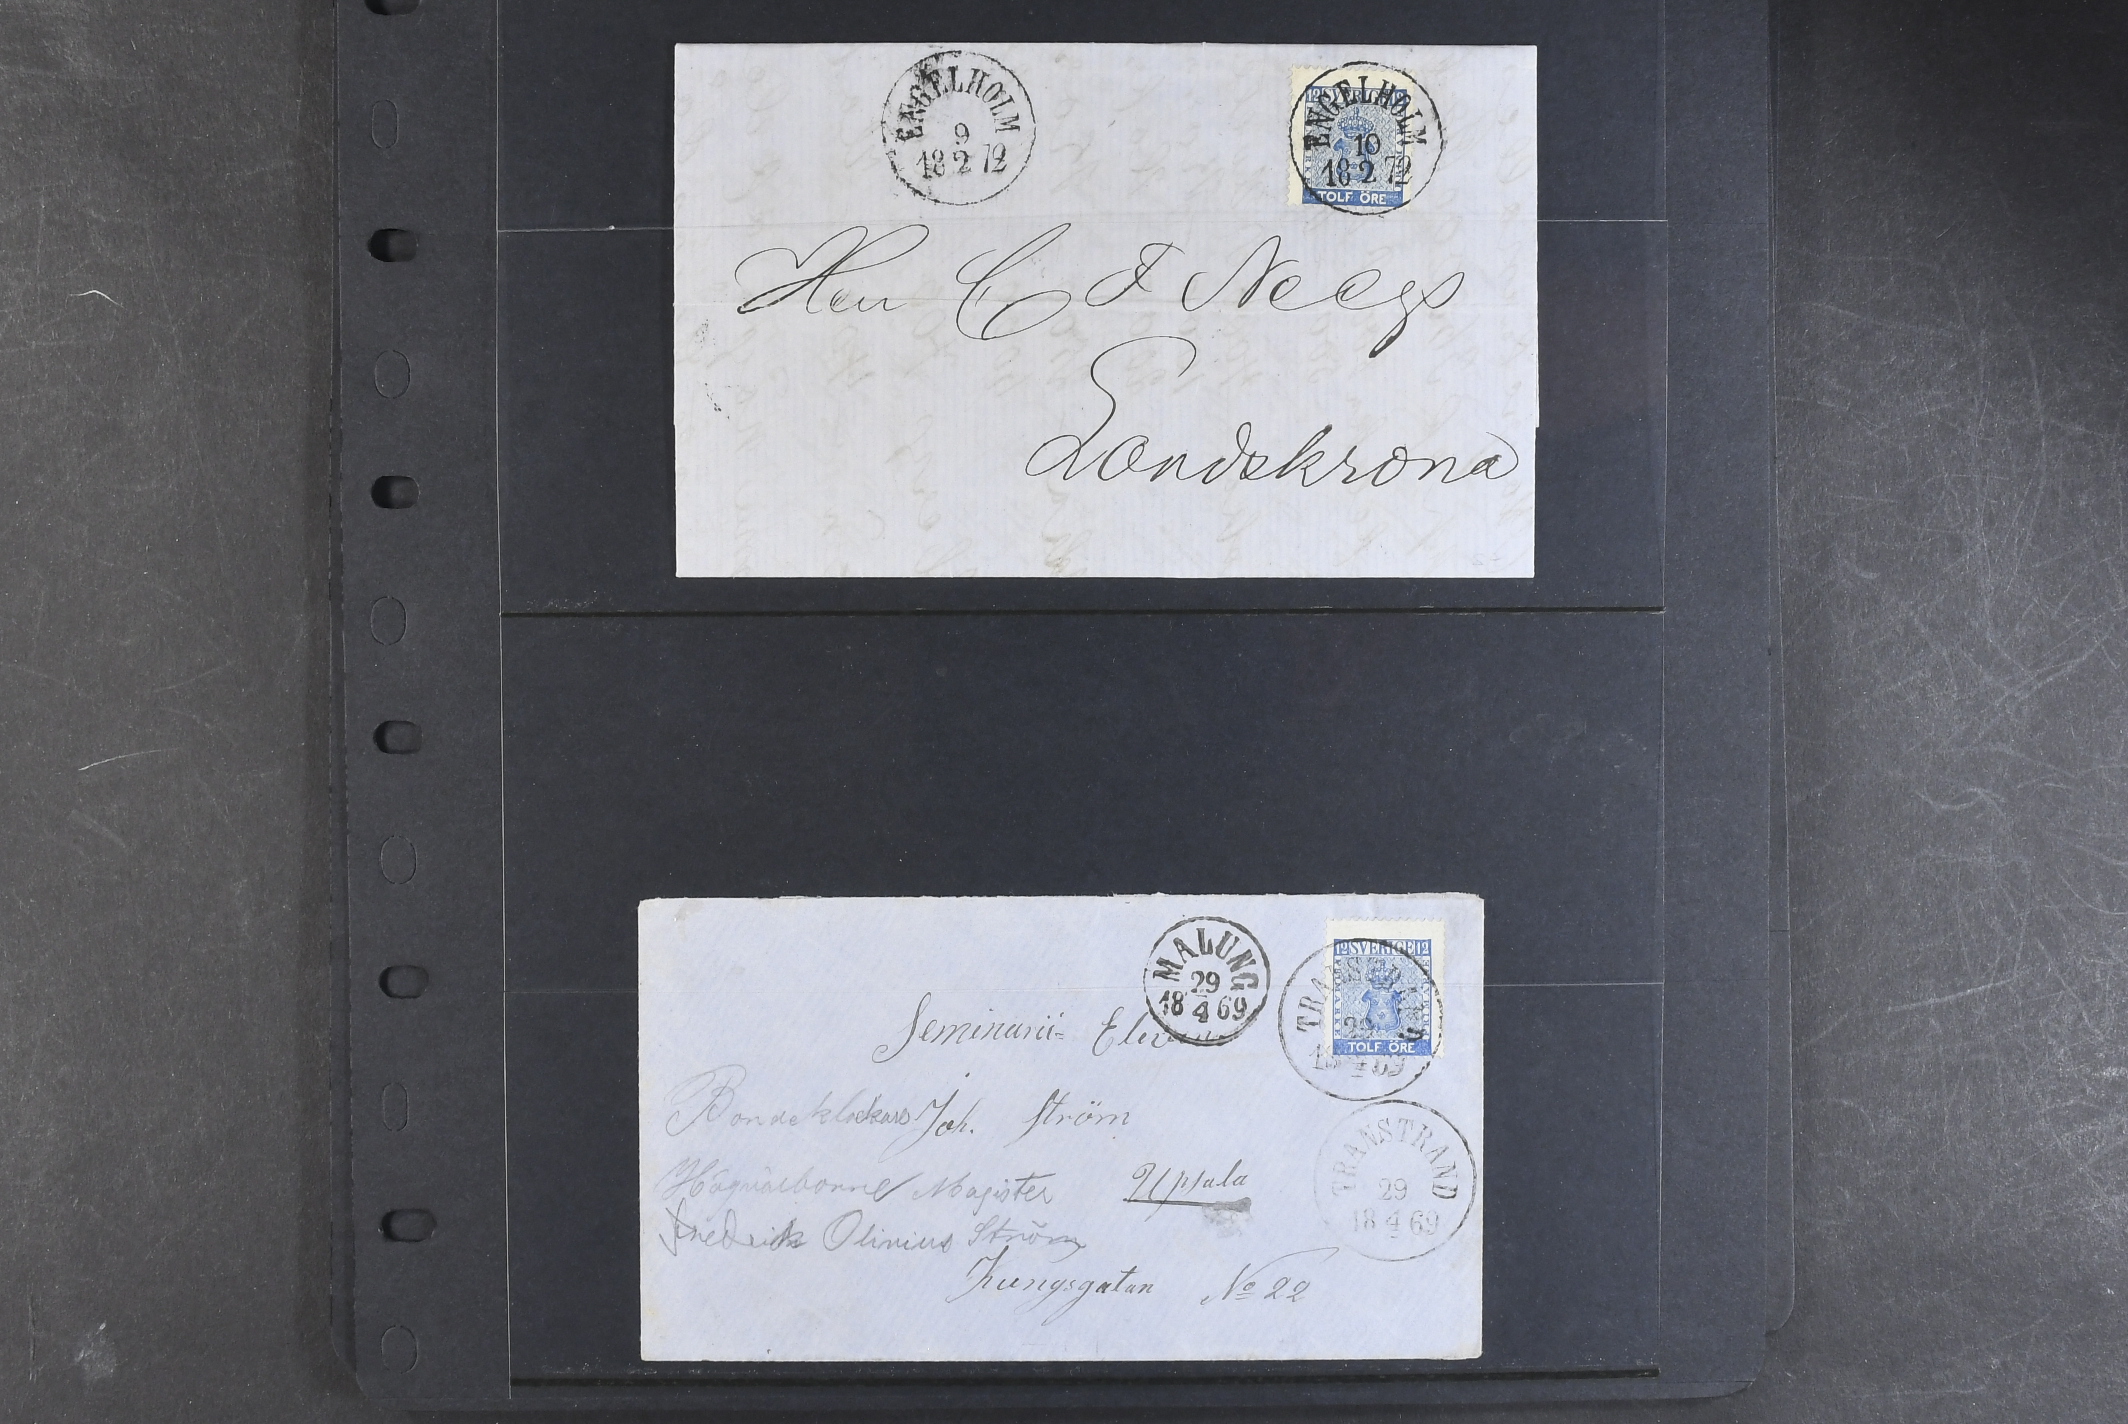 ENGELHOLM
9
18 2 72
12 SVERIGE 12
TOLF ÖRE
ENGELHOLM
10
18 2 72
Herr C F Neess
Landskrona
MALUNG
29
18 4 69
12 SVERIGE 12
TOLF ÖRE
TRANSTRAND
29
18 4 69
Seminarii- Eleven
Joh. Ström
Magister Upsala
Olinius Ström
Kungsgatan No 22
TRANSTRAND
29
18 4 69